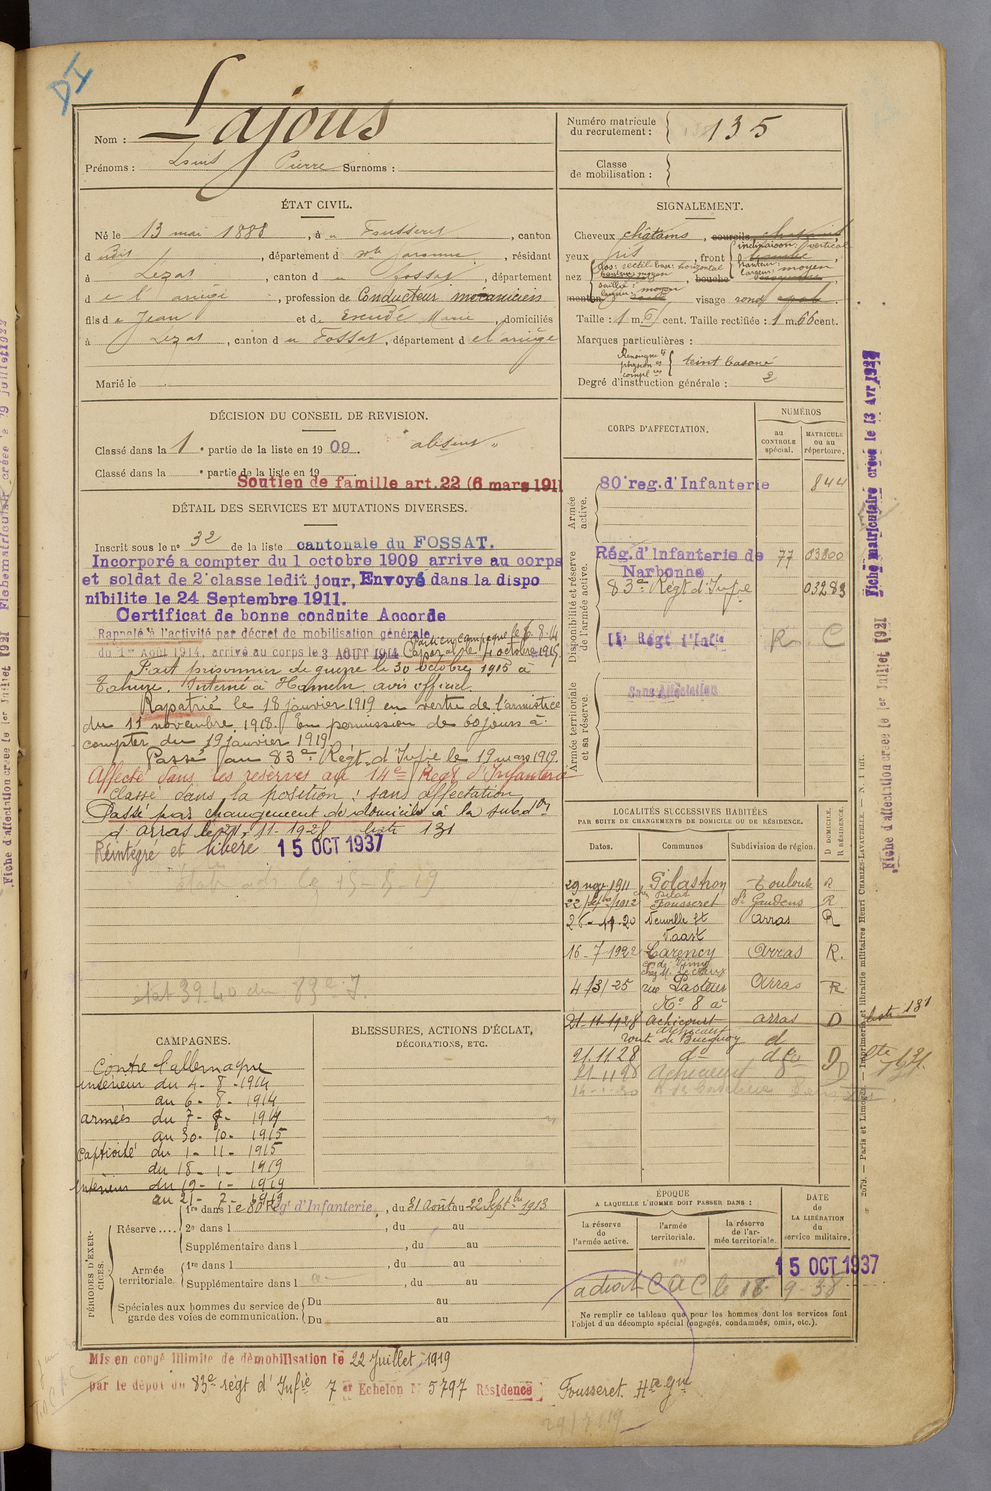 DI
Lajous
Nom :
Prénoms : Louis Pierre Surnoms :
Numéro matricule du recrutement : 135
Classe de mobilisation :
ÉTAT CIVIL.
Né le 13 mai 1888, à Fousseret, canton
d udit, département d Hte Garonne, résidant
à Lezat, canton d u Fossat, département
d e l'ariège, profession de Conducteur mécanicien
fils d e Jean et d Escudé Marie, domiciliés
à Lézat, canton d u Fossat, département d e l'ariège
Marié le
SIGNALEMENT.
Cheveux châtains, sourcils chatains
yeux gris, front inclinaison : vertical
hauteur :
largeur : moyen
nez dos : rectil-base : horizontal
hauteur : moyen
saillie : moyen
largeur : moyen
bouche
menton visage rond
Taille : 1 m. 61 cent. Taille rectifiée : 1 m. 66 cent.
Marques particulières :
Renseignts physion. complres teint basané
Degré d'instruction générale : 2
DÉCISION DU CONSEIL DE REVISION.
Classé dans la 1 e partie de la liste en 1909. "absent"
Classé dans la e partie de la liste en 19
Soutien de famille art. 22 (6 mars 1911
DÉTAIL DES SERVICES ET MUTATIONS DIVERSES.
Inscrit sous le n° 32 de la liste cantonale du FOSSAT.
Incorporé a compter du 1 octobre 1909 arrive au corps
et soldat de 2e classe ledit jour, Envoyé dans la dispo
nibilite le 24 Septembre 1911.
Certificat de bonne conduite Accorde
Rappelé à l'activité par décret de mobilisation générale
du 1er Août 1914, arrivé au corps le 3 AOUT 1914 Parti en campagne le 7-8-14
Caporal le 4 octobre 1915
Fait prisonnier de guerre le 30 octobre 1915 à
Tahure. Interné à Hameln avis officiel.
Rapatrié le 18 janvier 1919 en vertu de l'armistice
du 11 novembre 1918. En permission de 60 jours à
compter du 19 janvier 1919.
Passé au 83e Régt d'Infie le 19 mars 1919.
Affecté dans les réserves au 14e Régt d'Infanterie
Classé dans la position : sans affectation
Passé par changement de domicile à la subdon
d'arras le 21-11-1928 liste 131
Réintégré et libéré 15 OCT 1937
état 39.40 du 83e I.
CORPS D'AFFECTATION.
NUMÉROS
au CONTROLE spécial.
MATRICULE ou au répertoire.
Armée active.
80e reg. d'Infanterie 844
Disponibilité et réserve de l'armée active.
Rég. d'Infanterie de Narbonne 77 03800
83e Régt d'Infie 03283
14e Régt d'Infie R. C
Armée territoriale et sa réserve.
Sans Affectation
LOCALITÉS SUCCESSIVES HABITÉES
PAR SUITE DE CHANGEMENTS DE DOMICILE OU DE RÉSIDENCE.
Dates. Communes Subdivision de région. D DOMICILE. R RÉSIDENCE.
29 nov. 1911 Polastron Toulouse R
22 1912 Fousseret St Gaudens R
26-11-20 Neuville St Vaast Arras R
16-7-1922 Carency Arras R.
4/3/25 rue Pasteur N° 8 à Arras R
21-11-1928 Achicourt arras D liste 131
route de Bucquoy
21.11.28 do do D
21 11 28 achicourt D
CAMPAGNES.
Contre l'allemagne
intérieur du 4-8-1914
au 6-8-1914
armées du 7-8-1914
au 30-10-1915
Captivité du 1-11-1915
du 18-1-1919
intérieur du 19-1-1919
au 21-7-1919
BLESSURES, ACTIONS D'ÉCLAT,
DÉCORATIONS, ETC.
PÉRIODES D'EXERCICES.
Réserve.... 1re dans l e 80e Rég' d'Infanterie, du 31 Août au 22 Septbre 1913
2e dans l , du au
Supplémentaire dans l , du au
Armée territoriale. 1re dans l , du au
Supplémentaire dans l , du au
Spéciales aux hommes du service de garde des voies de communication. Du au
Du au
ÉPOQUE
A LAQUELLE L'HOMME DOIT PASSER DANS :
la réserve de l'armée active.
l'armée territoriale.
la réserve de l'armée territoriale.
DATE DE LA LIBÉRATION du service militaire.
15 OCT 1937
a droit C A C le 18-9-38
Ne remplir ce tableau que pour les hommes dont les services font l'objet d'un décompte spécial (engagés, condamnés, omis, etc.).
Mis en congé illimité de démobilisation le 22 Juillet 1919
par le dépôt du 83e régt d'Infie 7 e Echelon N° 5797 Résidence Fousseret. Hte Gne
Fiche matriculaire créée le 13 Avr 1922
Fiche d'affectation créée le 1er Juillet 1921
2079. — Paris et Limoges. — Imprimerie et librairie militaires Henri CHARLES-LAVAUZELLE. — N. 1 int.